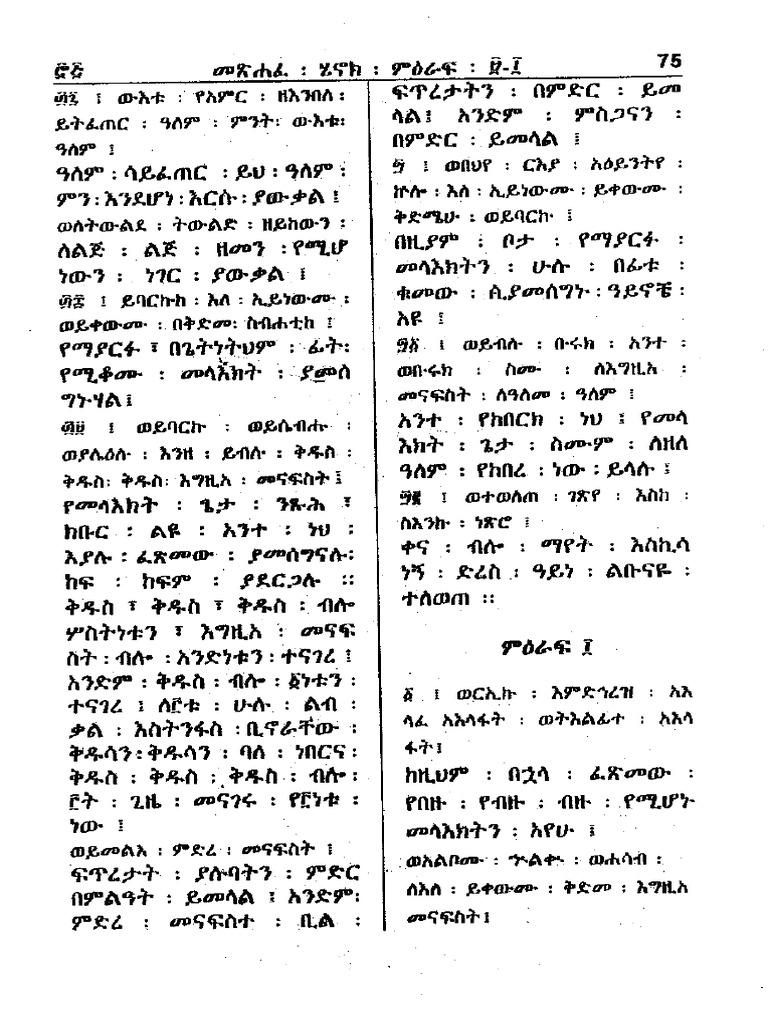 ፸፭ መጽሐፈ ፡ ሄኖክ ፡ ምዕራፍ ፡ ፱-፲ 75
፴፯ ፤ ውእቱ ፡ የአምር ፡ ዘእንበለ ፡
ይትፈጠር ፡ ዓለም ፡ ምንት፡ ውእቱ፡
ዓለም ፤
ዓለም ፡ ሳይፈጠር ፡ ይህ ፡ ዓለም ፡
ምን ፡ እንደሆነ ፡ እርሱ ፡ ያውቃል ፤
ወለትውልደ ፡ ትውልድ ፡ ዘይከውን ፡
ለልጅ ፡ ልጅ ፡ ዘመን ፡ የሚሆ
ነውን ፡ ነገር ፡ ያውቃል ፤
፴፰ ፤ ይባርኩከ ፡ እለ ፡ ኢይነውሙ ፡
ወይቀውሙ ፡ በቅድመ፡ ስብሐቲከ ፤
የማያርፉ ፣ በጌትነትህም ፡ ፊት፡
የሚቆሙ ፡ መላእክት ፡ ያመሰ
ግኑሃል፤
፴፱ ፤ ወይባርኩ ፡ ወይሴብሑ ፡
ወያሌዕሉ ፡ እንዘ ፡ ይብሉ ፡ ቅዱስ ፡
ቅዱስ፡ ቅዱስ፡ እግዚአ ፡ መናፍስት፤
የመላእክት ፡ ጌታ ፡ ንጹሕ ፣
ክቡር ፡ ልዩ ፡ አንተ ፡ ነህ ፡
እያሉ ፡ ፈጽመው ፡ ያመሰግናሉ፡
ከፍ ፡ ከፍም ፡ ያደርጋሉ ።
ቅዱስ ፣ ቅዱስ ፣ ቅዱስ ፡ ብሎ
ሦስትነቱን ፣ እግዚአ ፡ መናፍ
ስት ፡ ብሎ ፡ አንድነቱን ፡ ተናገረ ፤
አንድም ፡ ቅዱስ ፡ ብሎ ፡ ፩ነቱን ፡
ተናገረ ፤ ለ፫ቱ ፡ ሁሉ ፡ ልብ ፡
ቃል ፡ እስትንፋስ ፡ ቢኖራቸው ፡
ቅዱሳን ፡ ቅዱሳን ፡ ባለ ፡ ነበርና ፡
ቅዱስ ፡ ቅዱስ ፡ ቅዱስ ፡ ብሎ ፡
፫ት ፡ ጊዜ ፡ መናገሩ ፡ የ፫ነቱ ፡
ነው ፤
ወይመልእ ፡ ምድረ ፡ መናፍስት ፤
ፍጥረታት ፡ ያሉባትን ፡ ምድር
በምልዓት ፡ ይመላል ፤ አንድም፡
ምድረ ፡ መናፍስተ ፡ ቢል ፡
ፍጥረታትን ፡ በምድር ፡ ይመ
ላል፤ አንድም ፡ ምስጋናን ፡
በምድር ፡ ይመላል ፤
፵ ፤ ወበህየ ፡ ርእያ ፡ አዕይንትየ ፡
ኵሎ ፡ እለ ፡ ኢይነውሙ ፡ ይቀውሙ ፡
ቅድሜሁ ፡ ወይባርኩ ፤
በዚያም ፡ ቦታ ፡ የማያርፉ ፡
መላእክትን ፡ ሁሉ ፡ በፊቱ ፡
ቁመው ፡ ሲያመሰግኑ ፡ ዓይኖቼ ፡
አዩ ፤
፵፩ ፤ ወይብሉ ፡ ቡሩክ ፡ አንተ ፡
ወቡሩክ ፡ ስሙ ፡ ለእግዚአ ፡
መናፍስት ፡ ለዓለመ ፡ ዓለም ፤
አንተ ፡ የከበርክ ፡ ነህ ፤ የመላ
እክት ፡ ጌታ ፡ ስሙም ፡ ለዘለ
ዓለም ፡ የከበረ ፡ ነው ፡ ይላሉ ፤
፵፪ ፤ ወተወለጠ ፡ ገጽየ ፡ እስከ ፡
ስእንኩ ፡ ነጽሮ ፤
ቀና ፡ ብሎ ፡ ማየት ፡ እስኪሳ
ነኝ ፡ ድረስ ፡ ዓይነ ፡ ልቡናዬ ፡
ተለወጠ ።
ምዕራፍ ፲
፩ ፤ ወርኢኩ ፡ እምድኅረዝ ፡ አእ
ላፈ አእላፋት ፡ ወትእልፊተ ፡ አእላ
ፋት፤
ከዚህም ፡ በኋላ ፡ ፈጽመው ፡
የበዙ ፡ የብዙ ፡ ብዙ ፡ የሚሆኑ
መላእክትን ፡ አየሁ ፤
ወአልቦሙ ፡ ኍልቍ ፡ ወሐሳብ ፡
ለእለ ፡ ይቀውሙ ፡ ቅድመ ፡ እግዚአ
መናፍስት፤